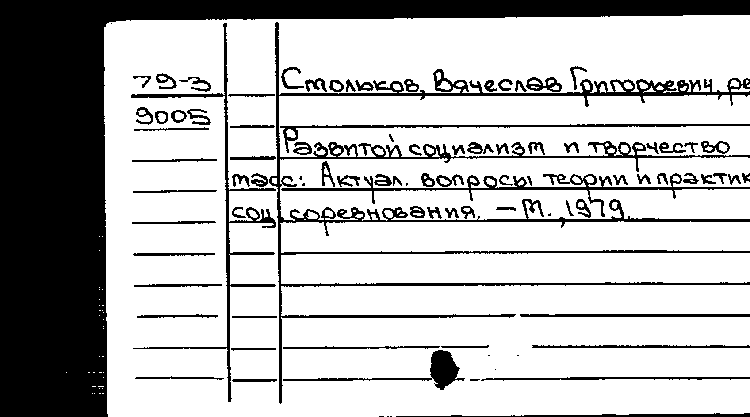 79-3 Стольков, Вячеслав Григорьевич, ре
9005
Развитой социализм и творчество
масс: Актуал. вопросы теории и практик
соц. соревнования. – М., 1979.